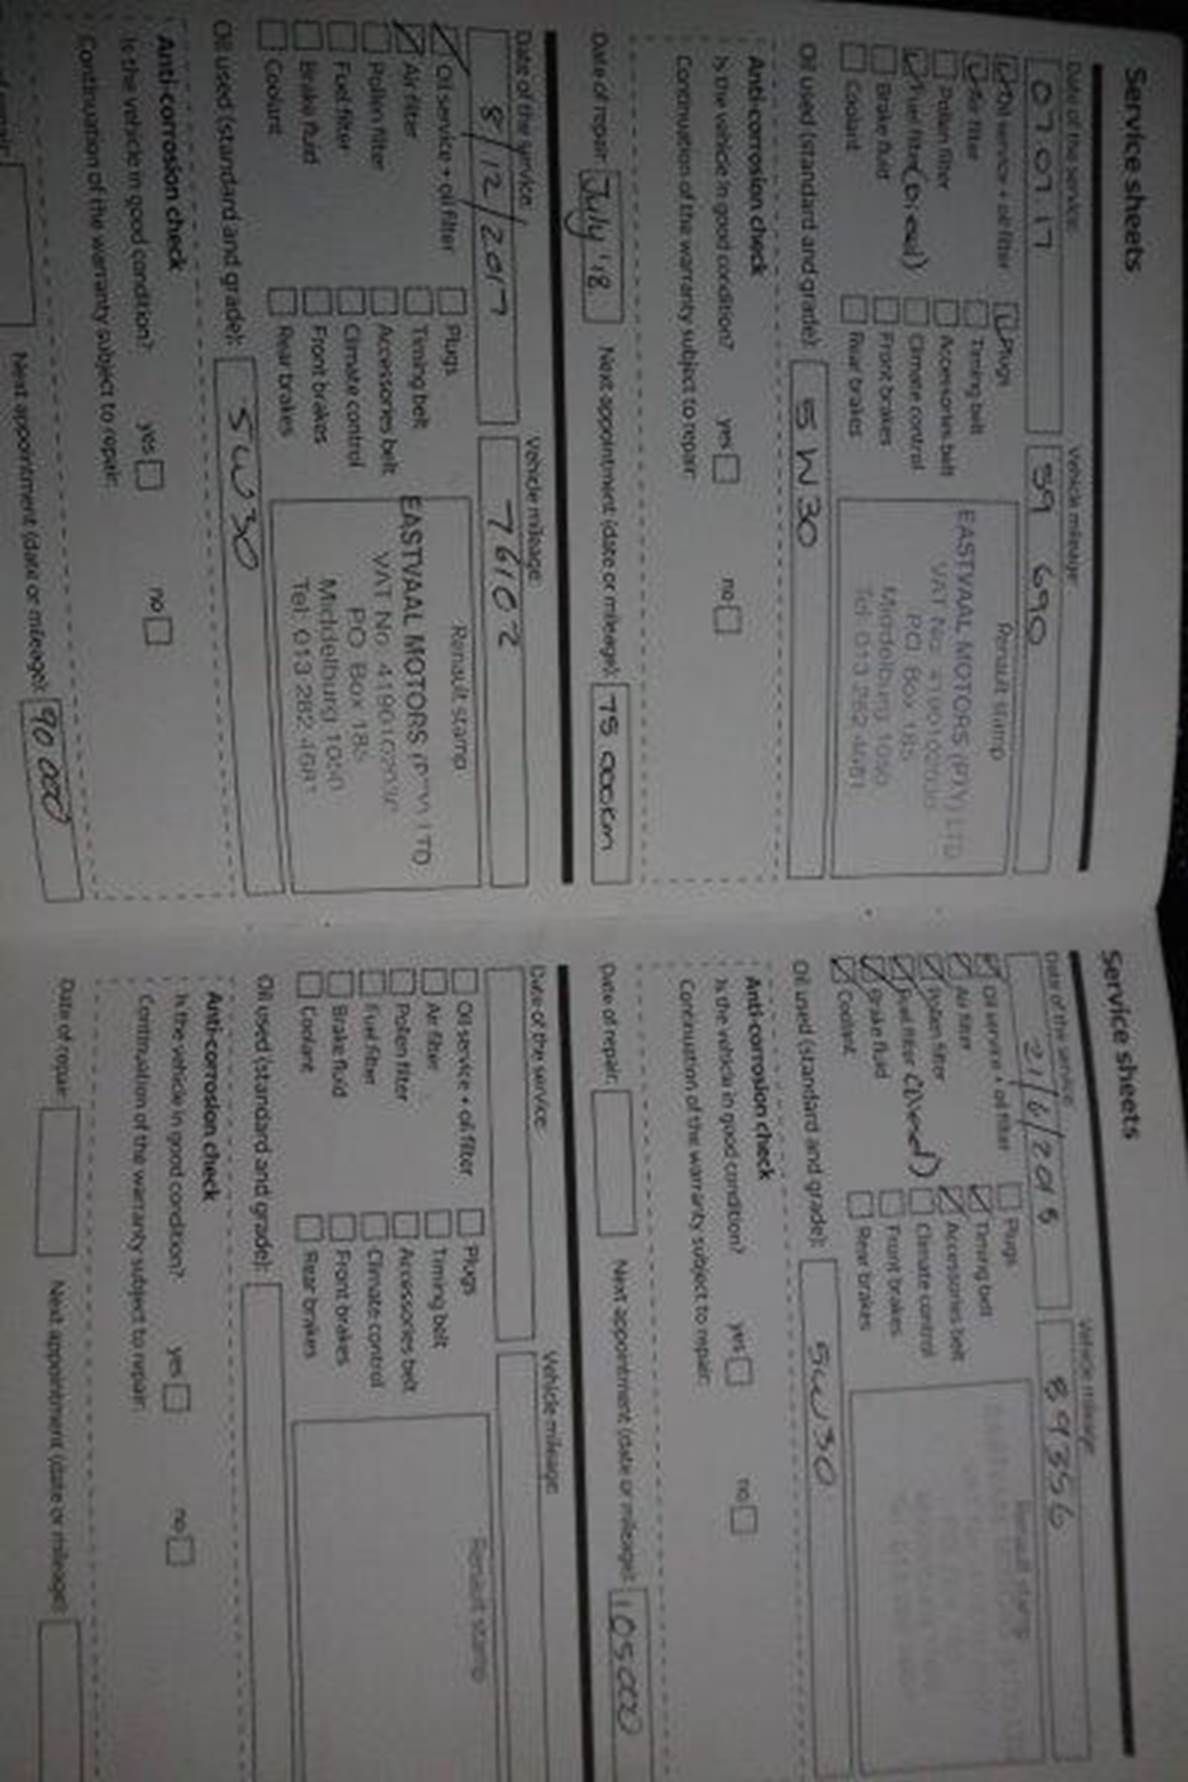 Service sheets
Date of the service: Vehicle mileage:
07 07 17 59 690
Oil service + oil filter Plugs
Air filter Timing belt
Pollen filter Accessories belt
Fuel filter (Diesel) Climate control
Brake fluid Front brakes
Coolant Rear brakes
Renault stamp
EASTVAAL MOTORS (PTY) LTD
VAT No.
PO Box 18
Middelburg 1050
Tel: 013 282 4681
Oil used (standard and grade): 5W30
Anti-corrosion check
Is the vehicle in good condition? yes no
Continuation of the warranty subject to repair:
Date of repair: July '18 Next appointment (date or mileage): 75 000km
Date of the service: Vehicle mileage:
8/12/2017 76102
Oil service + oil filter Plugs
Air filter Timing belt
Pollen filter Accessories belt
Fuel filter Climate control
Brake fluid Front brakes
Coolant Rear brakes
Renault stamp
EASTVAAL MOTORS (PTY) LTD
VAT No.
PO Box 18
Middelburg 1050
Tel: 013 282 4681
Oil used (standard and grade): 5W30
Anti-corrosion check
Is the vehicle in good condition? yes no
Continuation of the warranty subject to repair:
Next appointment (date or mileage): 90 000
Service sheets
Date of the service: Vehicle mileage:
21/6/201 89356
Oil service + oil filter Plugs
Air filter Timing belt
Pollen filter Accessories belt
Fuel filter (Diesel) Climate control
Brake fluid Front brakes
Coolant Rear brakes
Renault stamp
Oil used (standard and grade): 5W30
Anti-corrosion check
Is the vehicle in good condition? yes no
Continuation of the warranty subject to repair:
Date of repair: Next appointment (date or mileage): 105000
Date of the service: Vehicle mileage:
Oil service + oil filter Plugs
Air filter Timing belt
Pollen filter Accessories belt
Fuel filter Climate control
Brake fluid Front brakes
Coolant Rear brakes
Renault stamp
Oil used (standard and grade):
Anti-corrosion check
Is the vehicle in good condition? yes no
Continuation of the warranty subject to repair:
Date of repair: Next appointment (date or mileage):